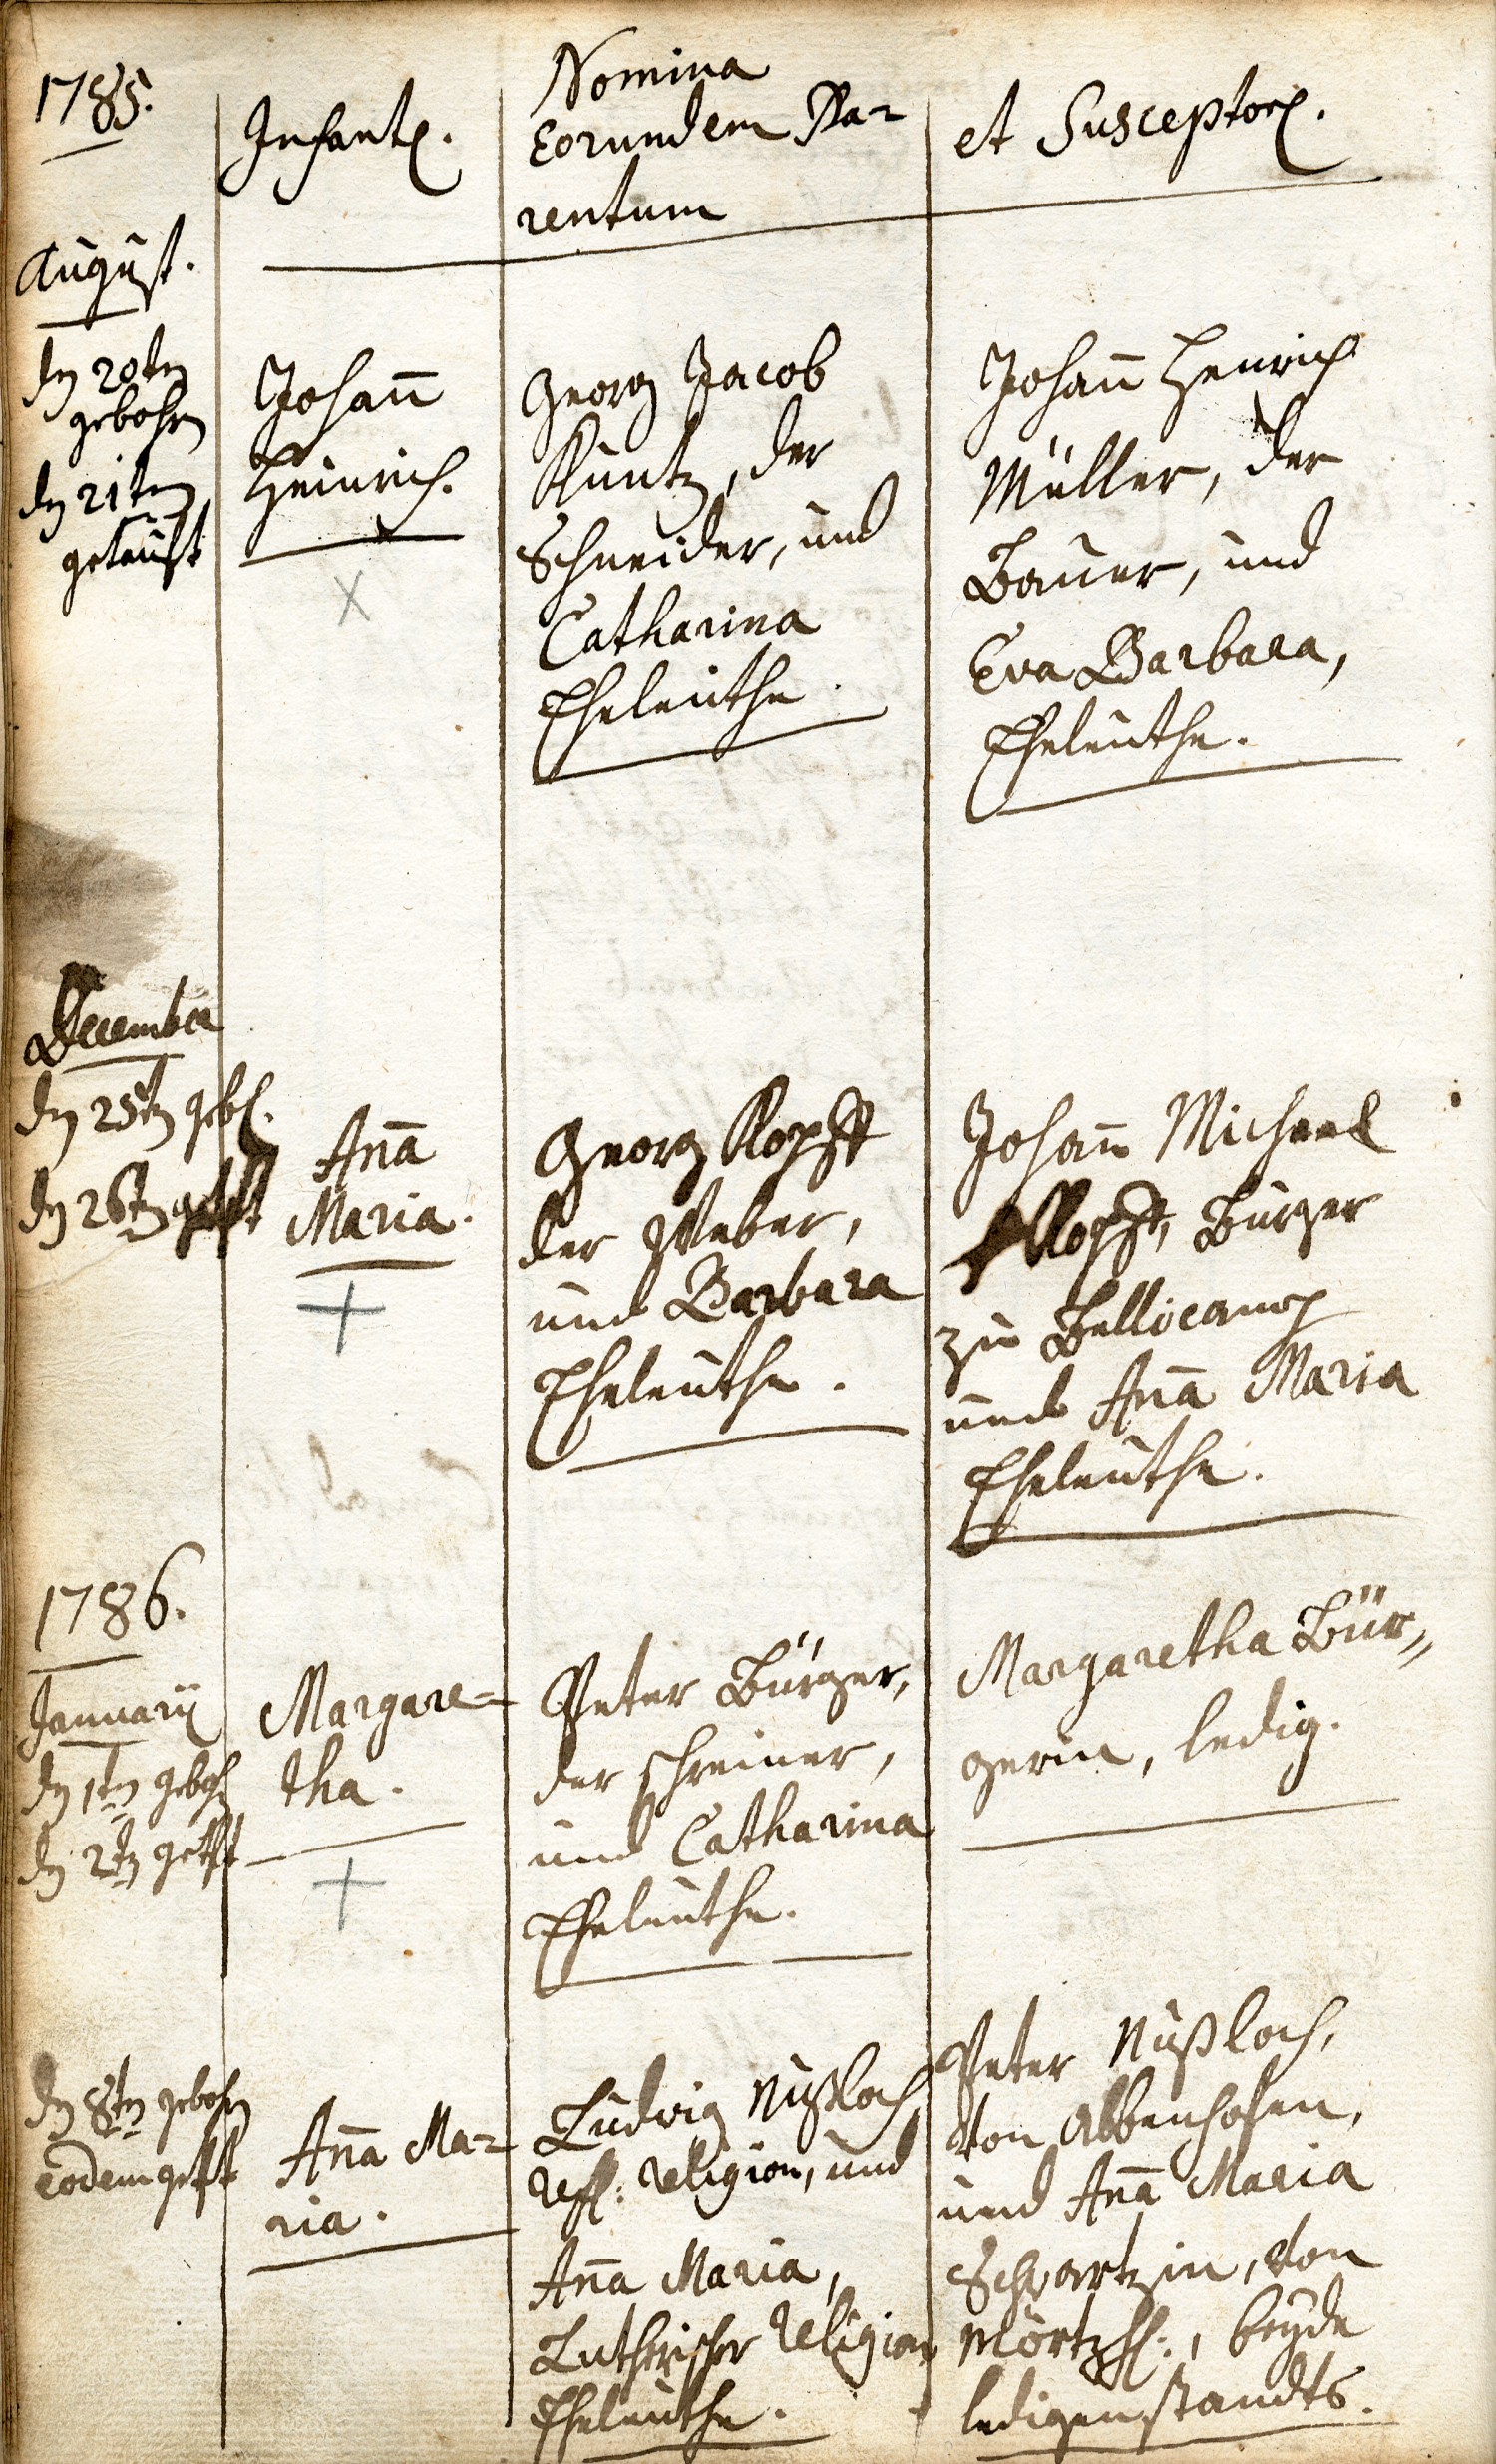 1785.
Infant.
Nomina
Eorundem Pa-
rentum
et Susceptor.
August.
den 20ten
gebohren
den 21ten
getauft
Johan̄
Heinrich.
Georg Jacob
Kuntz, der
Schneider, und
Catharina
Eheleuthe.
Johan̄ Henrich
Müller, der
Bauer, und
Eva Barbara,
Eheleuthe.
December
den 25ten geb.
den 26ten getft
An̄a
Maria.
Georg Kopff
der Weber,
und Barbara
Eheleuthe.
Johan̄ Michael
Kopff, Burger
zu Bellicamp
und An̄a Maria
Eheleuthe.
1786.
Januarii
den 1ten geboh
den 2ten getft
Margare-
tha.
Peter Bürger,
der schreiner,
und Catharina
Eheleuthe.
Margaretha Bür„
gerin, ledig.
den 8ten gebohren
eodem getft
An̄a Ma-
ria.
Ludwig Nußloch,
ref: religion, und
An̄a Maria,
Lutherischer religion
Eheleuthe.
Peter Nußloch,
von Abbenhofen,
und An̄a Maria
Schwartzin, von
Mörtzh:, beyde
ledigen standts.